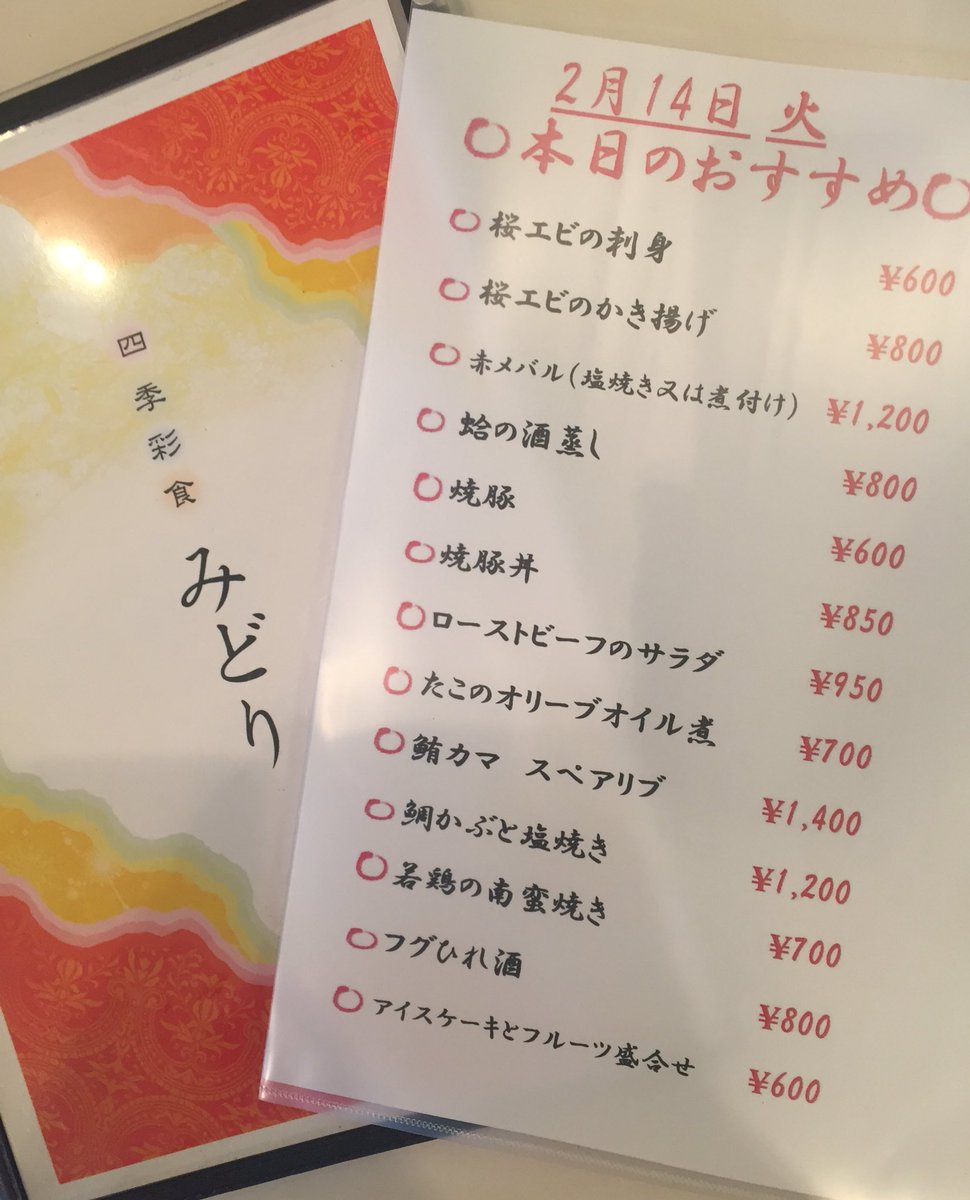 四季彩食
みどり
2月14日 火
○本日のおすすめ○
○桜エビの刺身 ¥600
○桜エビのかき揚げ ¥800
○赤メバル(塩焼き又は煮付け) ¥1,200
○蛤の酒蒸し ¥800
○焼豚 ¥600
○焼豚丼 ¥850
○ローストビーフのサラダ ¥950
○たこのオリーブオイル煮 ¥700
○鮪カマ スペアリブ ¥1,400
○鯛かぶと塩焼き ¥1,200
○若鶏の南蛮焼き ¥700
○フグひれ酒 ¥800
○アイスケーキとフルーツ盛合せ ¥600